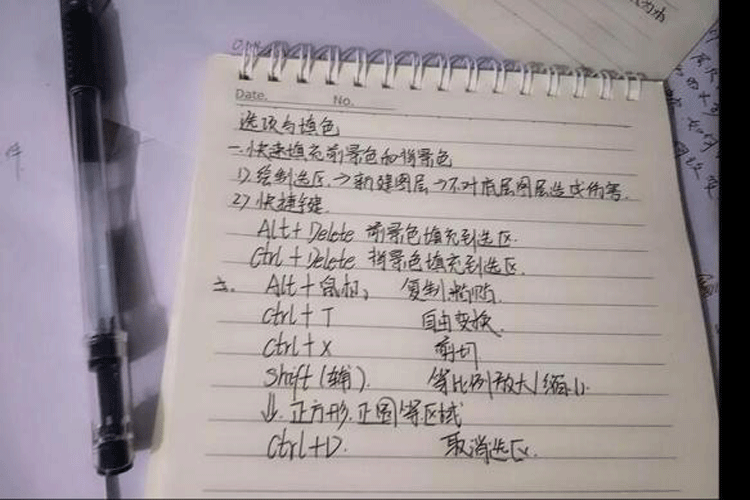 Date. No.
选项与填色
一.快速填充前景色和背景色
1).绘制选区.→新建图层→不对底层图层造成伤害.
2)快捷键.
Alt+Delete 前景色填充到选区.
Ctrl+Delete 背景色填充到选区.
Alt+鼠标, 复制
Ctrl+T 自由变换.
Ctrl+X 剪切
Shift(辅). 等比例放大/缩小.
↓.正方形.正圆等区域
Ctrl+D. 取消选区.